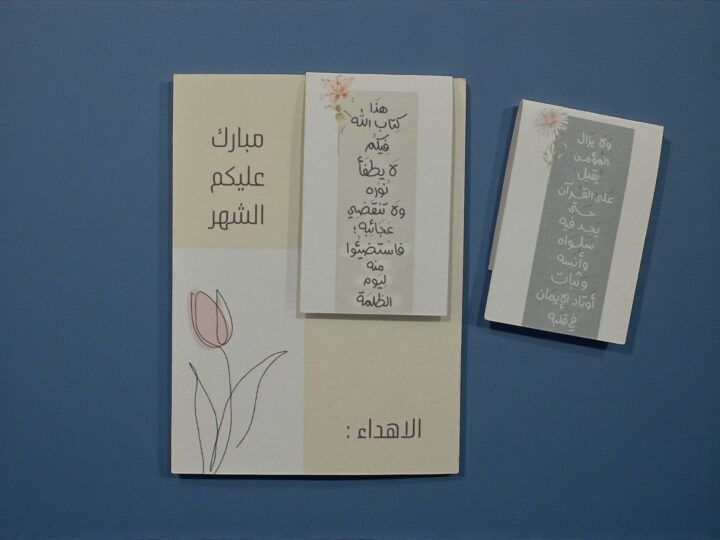 مبارك
عليكم
الشهر
الاهداء :
هذا
كتاب الله
فيكم
لا يطفأ
نوره
ولا تنقضي
عجائبه؛
فاستضيئوا
منه
ليوم
الظلمة
ولا يزال
المؤمن
يقبل
على القرآن
حتى
يجد فيه
سلواه
وأنسه
وثبات
أوتاد الإيمان
في قلبه